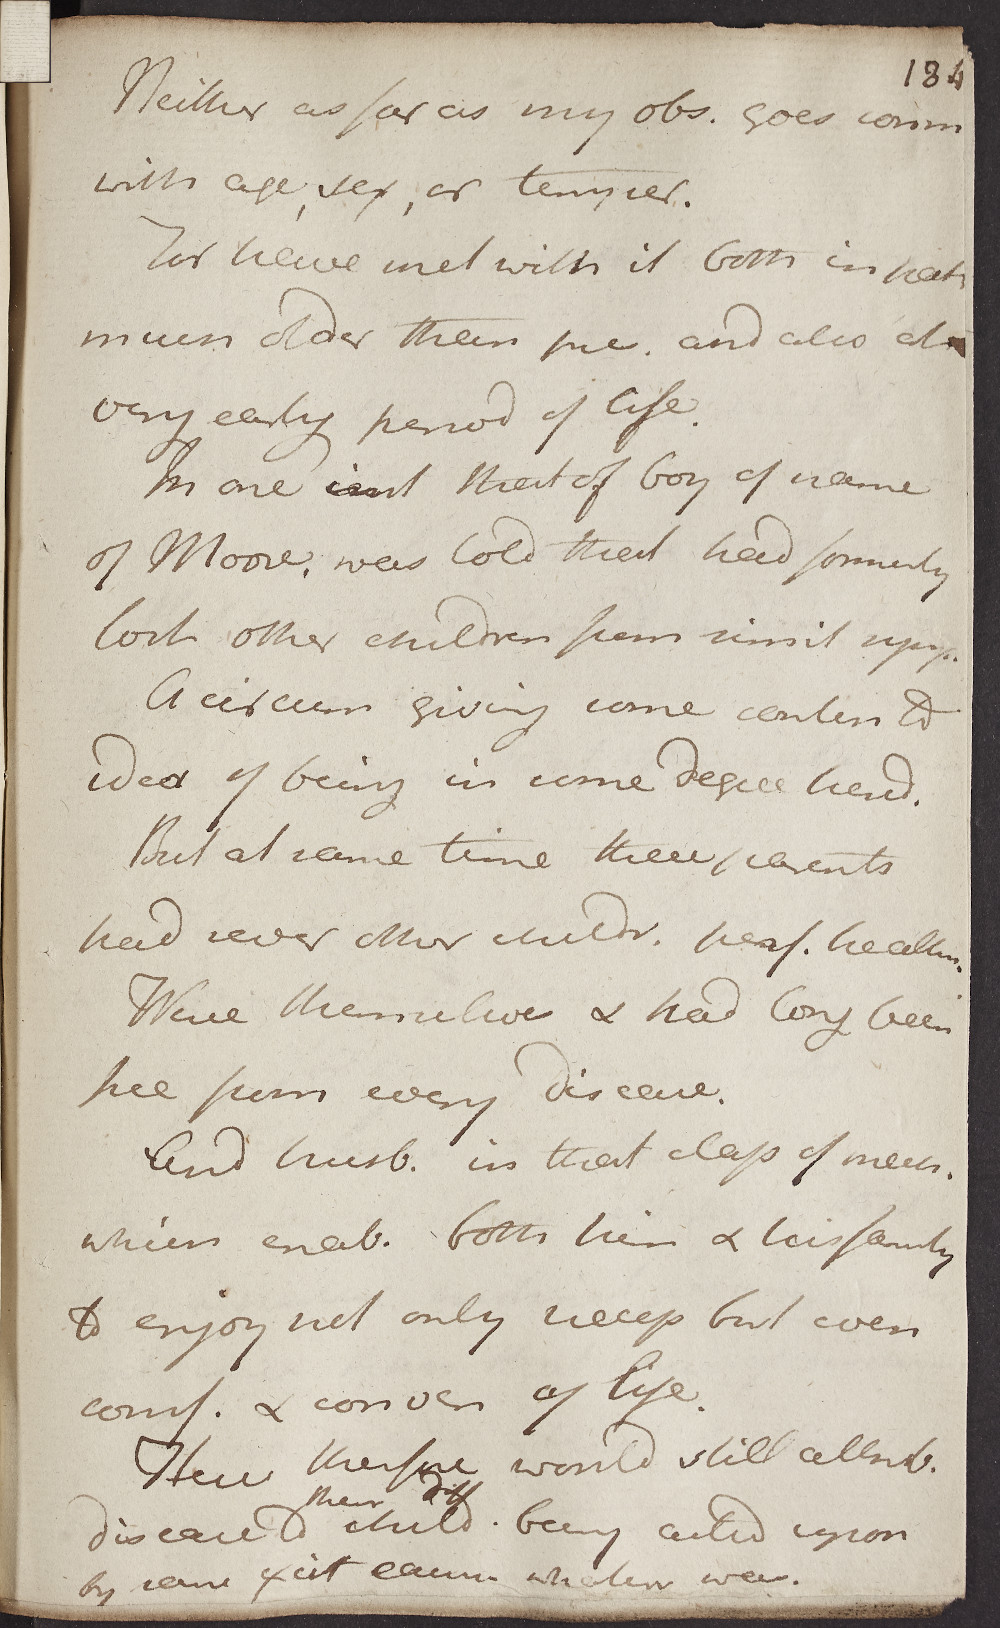 184
Neither as far as my obs. goes conn
with age, sex, or temper.
For have met with it both in pati
much older than pue. and also at
very early period of life.
In one inst that of boy of name
of Moore, was told that had formerly
lost other children from simil
A circum giving some counten to
idea of being in some degree hered.
But at same time these parents
had sever other childr. perf. health.
Were themselves & had long been
free from every disease.
And husb. in that class of mech.
which enab. both him & his family
to enjoy not only necess but even
comf. & conven of life.
Here therefore would still attrib.
their diff
disease to child. being acted upon
by same exit caus whatever was.